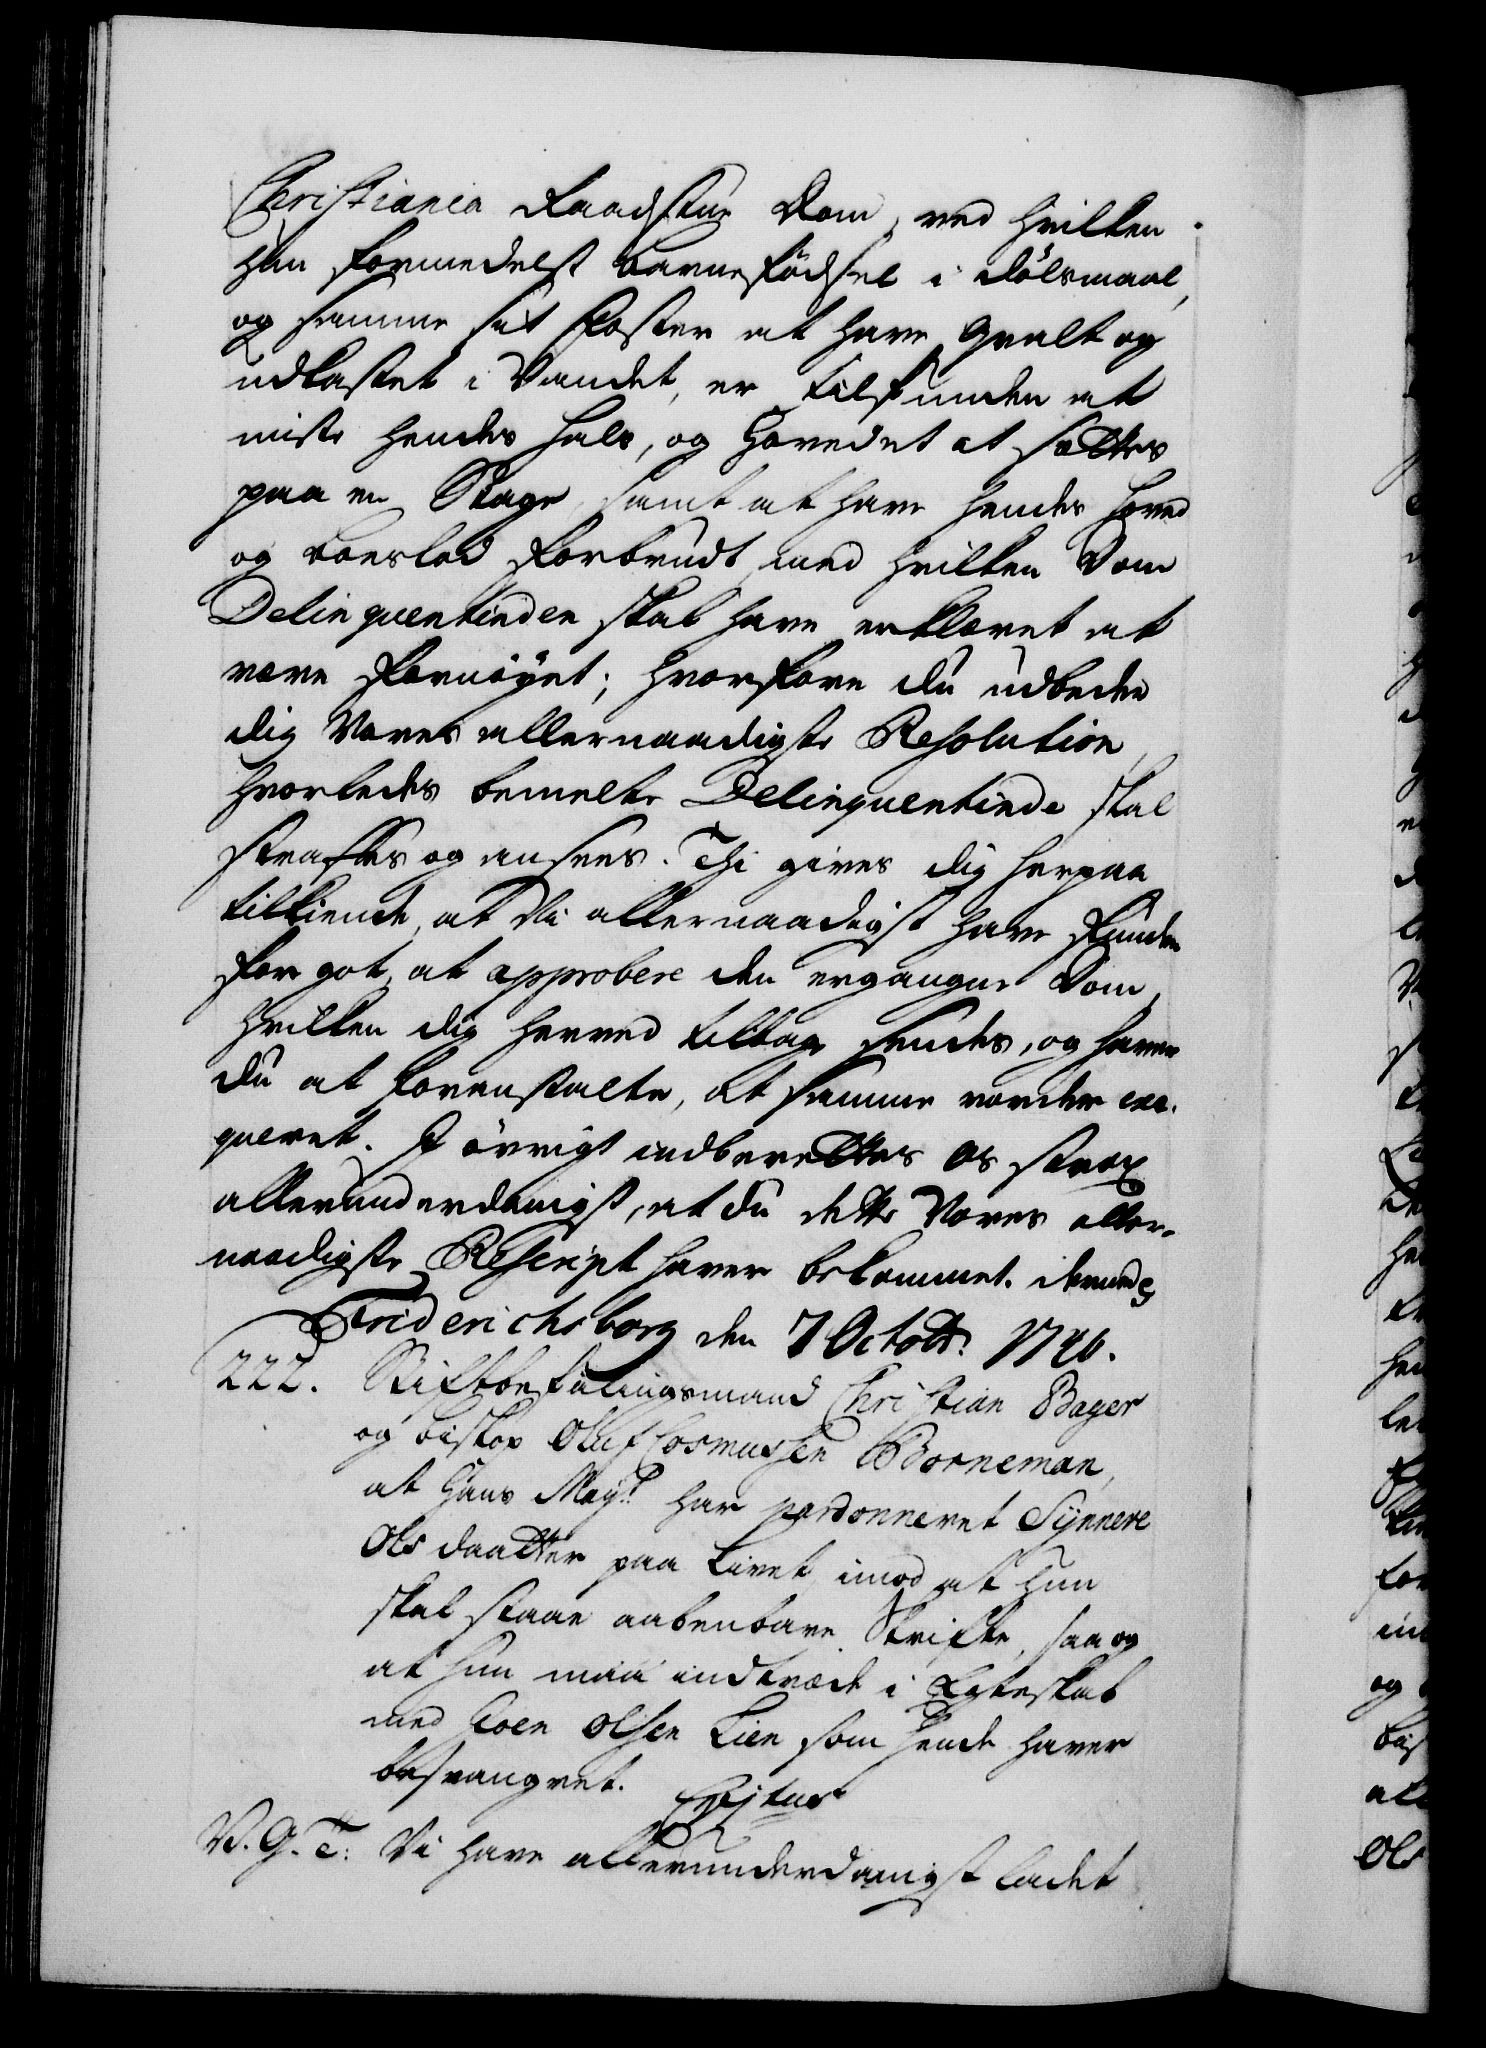 Christiania Raadstue Dom, ved hvilken
hun formedelst barnefødsel i dølsmaal,
og samme sit Foster at have qvalt og
udkastet i Vandet, er tilfunden at
miste hendes hals, og Hovedet at sættes
paa en Stage, samt at have hendes hoved
og boeslod forbrudt, med hvilken Dom
Delinquentinden skal have erklæret at
være fornøyet; hvorfore du udbeder
dig Vores allernaadigste Resolution,
hvorledes bemelte Delinquentinde skal
straffes og ansees. Thi gives dig herpaa
tilkiende, at Vi allernaadigst have funden
for got, at approbere den ergangne Dom,
hvilken dig herved tilbage sendes, og haver
du at foranstalte, at samme vorder exe-
queret. I øvrigt indberettes os strax
allerunderdanigst, at du dette Vores aller-
naadigste Rescript haver bekommet.
Friderichsborg den 7 Octobr. 1746.
222. Stiftbefalingsmand Christian Bager
og biskop Oluf Cosmussen Borneman,
at Hans Mayt. har pardonneret Synnere
Ols daatter paa Livet, imod at hun
skal staae aabenbare Skrifte, saa og
at hun maa indtræde i Egteskab
med Coen Olsen Lien som hende haver
besvangret.
V. G. T: Vi have allerunderdanigst ladet